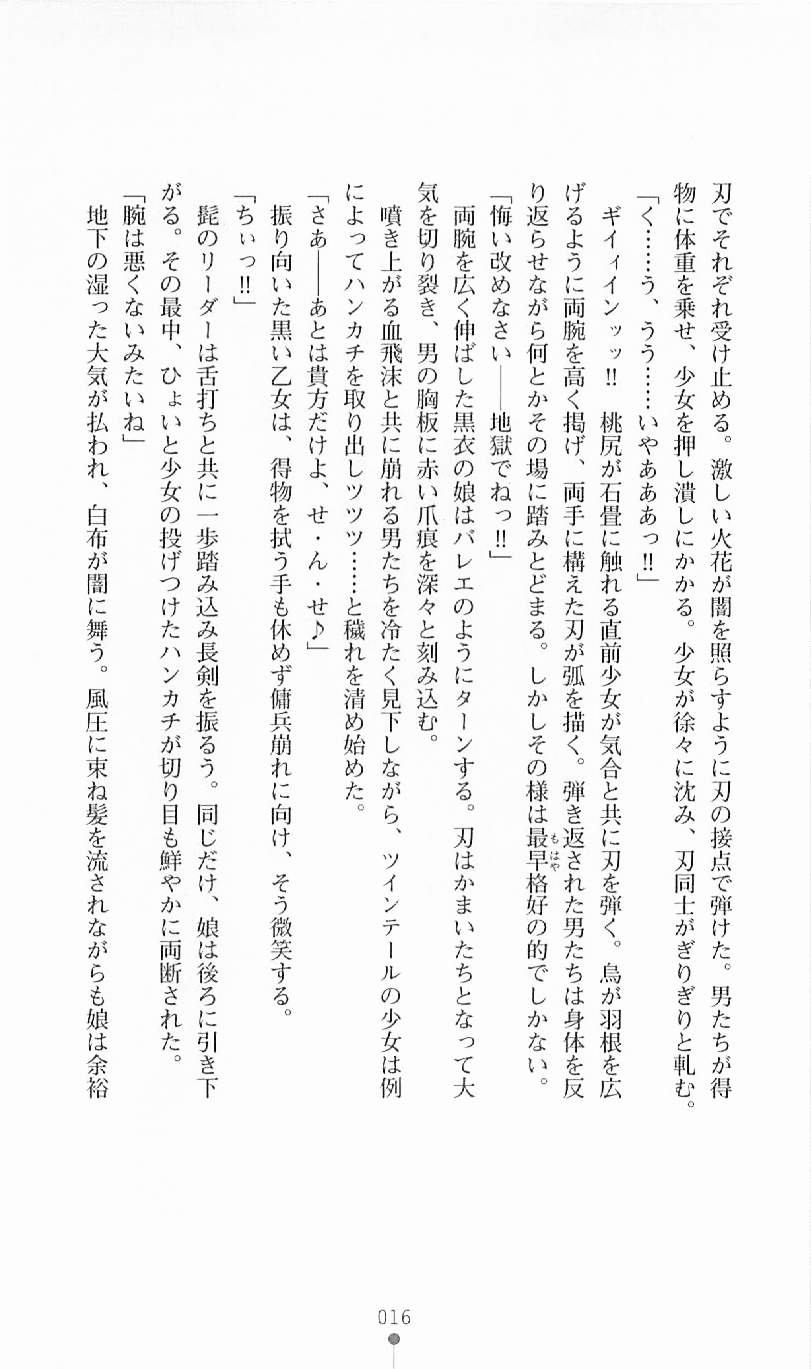 刃でそれぞれ受け止める。激しい火花が闇を照らすように刃の接点で弾けた。男たちが得
物に体重を乗せ、少女を押し潰しにかかる。少女が徐々に沈み、刃同士がぎりぎりと軋む。
「く……う、うう……いやあああっ‼」
　ギイィインッッ‼　桃尻が石畳に触れる直前少女が気合と共に刃を弾く。鳥が羽根を広
げるように両腕を高く掲げ、両手に構えた刃が弧を描く。弾き返された男たちは身体を反
り返らせながら何とかその場に踏みとどまる。しかしその様は最早もはや格好の的でしかない。
「悔い改めなさい――地獄でねっ‼」
　両腕を広く伸ばした黒衣の娘はバレエのようにターンする。刃はかまいたちとなって大
気を切り裂き、男の胸板に赤い爪痕を深々と刻み込む。
　噴き上がる血飛沫と共に崩れる男たちを冷たく見下しながら、ツインテールの少女は例
によってハンカチを取り出しツツツ……と穢れを清め始めた。
「さあ――あとは貴方だけよ、せ・ん・せ♪」
　振り向いた黒い乙女は、得物を拭う手も休めず傭兵崩れに向け、そう微笑する。
「ちぃっ‼」
　髭のリーダーは舌打ちと共に一歩踏み込み長剣を振るう。同じだけ、娘は後ろに引き下
がる。その最中、ひょいと少女の投げつけたハンカチが切り目も鮮やかに両断された。
「腕は悪くないみたいね」
　地下の湿った大気が払われ、白布が闇に舞う。風圧に束ね髪を流されながらも娘は余裕
016